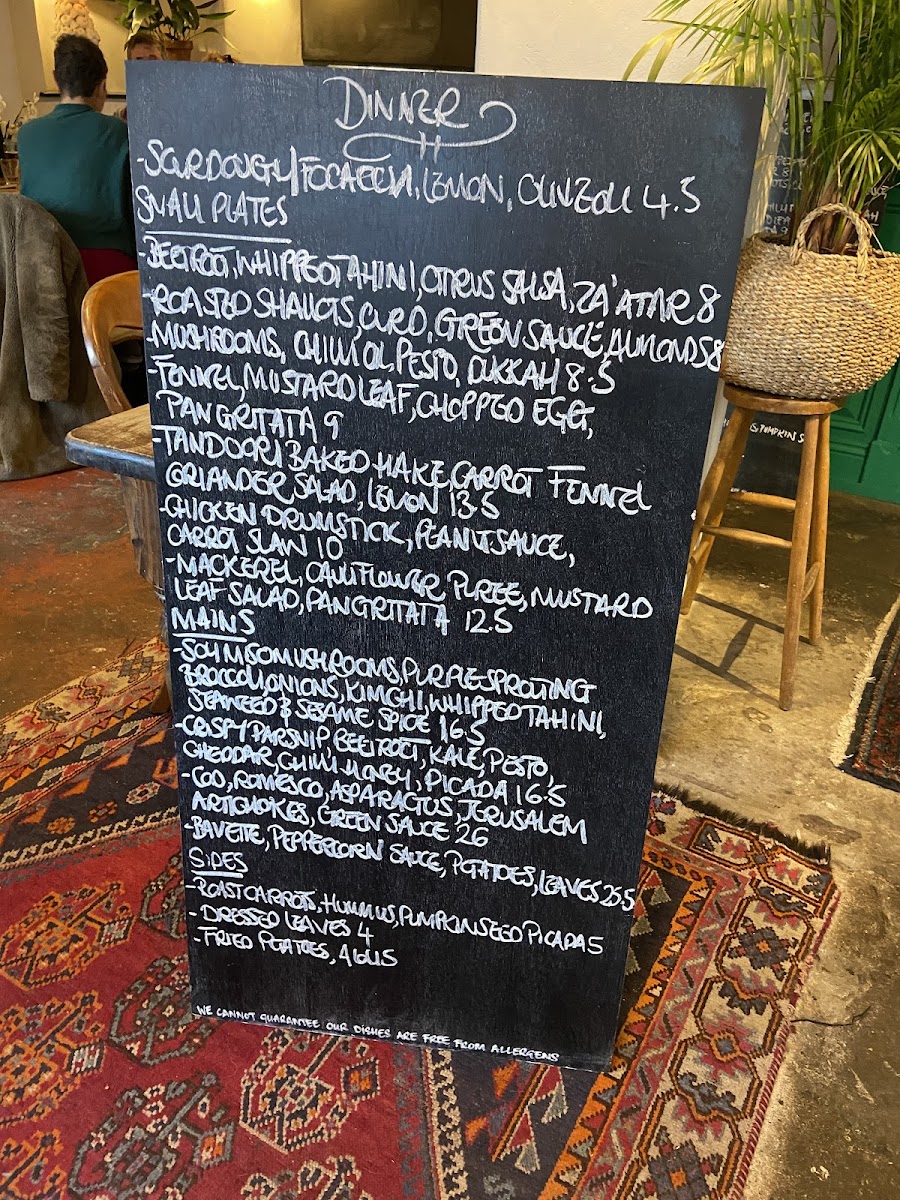 DINNER
-SOURDOUGH/FOCACCIA, LEMON, OLIVE OIL 4.5
SMALL PLATES
-BEETROOT, WHIPPED TAHINI, CITRUS SALSA, ZA'ATAR 8
-ROASTED SHALLOTS, CURD, GREEN SAUCE, ALMONDS 8
-MUSHROOMS, CHILLI OIL, PESTO, DUKKAH 8.5
-FENNEL, MUSTARD LEAF, CHOPPED EGG,
PANGRITATA 9
-TANDOORI BAKED HAKE, CARROT FENNEL
CORIANDER SALAD, LEMON 13.5
-CHICKEN DRUMSTICK, PEANUT SAUCE,
CARROT SLAW 10
-MACKEREL, CAULIFLOWER PUREE, MUSTARD
LEAF SALAD, PANGRITATA 12.5
MAINS
-SOY MISO MUSHROOMS, PURPLE SPROUTING
BROCCOLI, ONIONS, KIMCHI, WHIPPED TAHINI,
SEAWEED & SESAME SPICE 16.5
-CRISPY PARSNIP, BEETROOT, KALE, PESTO,
CHEDDAR, CHILLI HONEY, PICADA 16.5
-COD, ROMESCO, ASPARAGUS, JERUSALEM
ARTICHOKES, GREEN SAUCE 26
-BAVETTE, PEPPERCORN SAUCE, POTATOES, LEAVES 25.5
SIDES
-ROAST CARROTS, HUMMUS, PUMPKIN SEED PICADA 5
-DRESSED LEAVES 4
-FRIED POTATOES, AIOLI 5
WE CANNOT GUARANTEE OUR DISHES ARE FREE FROM ALLERGENS